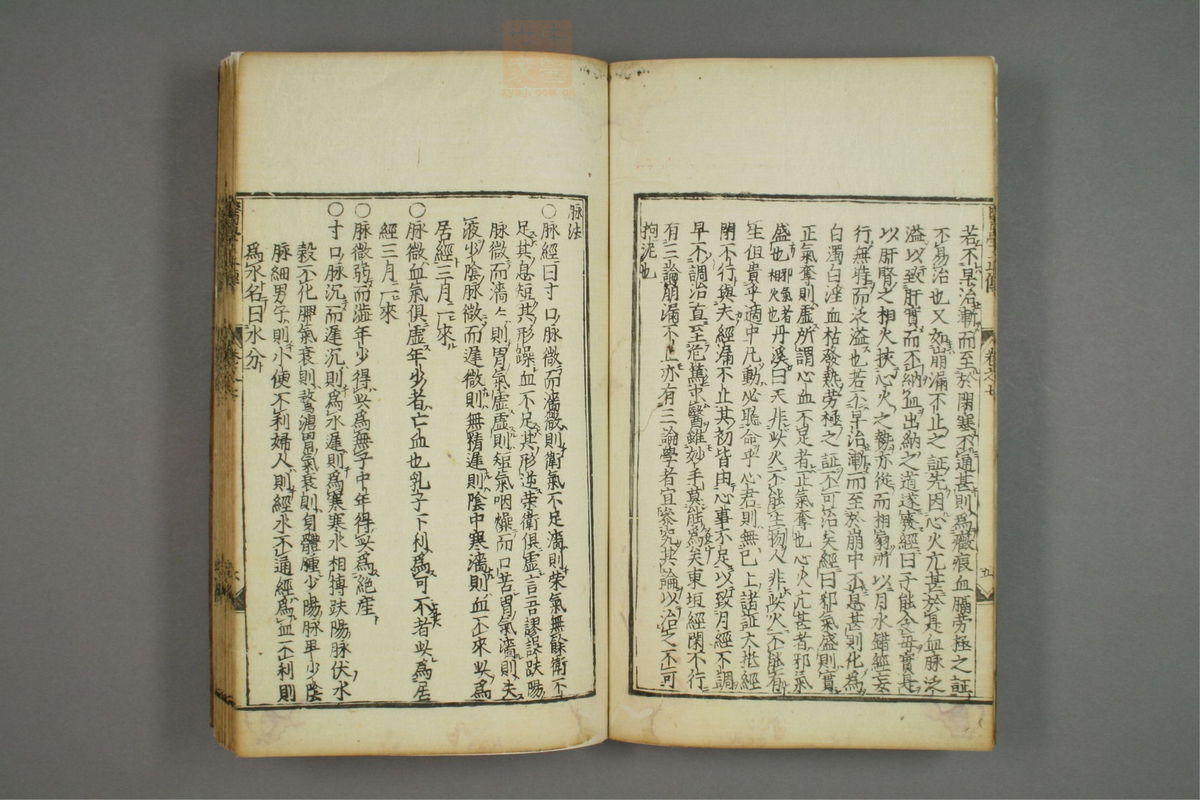 若不早治漸而至於閉塞不通甚則為癥瘕血膈勞極之証
不易治也又如崩漏不止之証先因心火亢甚於是血脉泛
溢以致肝實而不納血出納之道遂廢經曰子能令母實是
以肝腎之相火挾心火之勢亦從而相扇所以月水錯經妄
行無時而泛溢也若不早治漸而至於崩中不息甚則化為
白濁白淫血枯發熱勞極之証不可治矣經曰邪氣盛則實
正氣奪則虛所謂心血不足者正氣奪也心火亢甚者邪氣
盛也邪氣者相火也丹溪曰天非此火不能生物人非此火不能有
生但貴乎適中凡動必聽命乎心君則無已上諸証大抵經
閉不行與夫經漏不止其初皆由心事不足以致月經不調
早不調治直至危篤中醫雖妙手莫能為矣東垣經閉不行
有三論崩漏不止亦有三論學者宜參究其論以治之不可
拘泥也
五
脉法
○脉經曰寸口脉微而濇微則衛氣不足濇則榮氣無餘衛不
足其息短其形躁血不足其形逆榮衛俱虛言吾謬誤趺陽
脉微而濇濇則胃氣虛虛則短氣咽燥而口苦胃氣濇則失
液少陰脉微而遲微則無精遲則陰中寒濇則血不來此為
居經三月一來
○脉微血氣俱虛年少者亡血也乳子下利為可不者此為居
經三月一來
○脉微弱而濇年少得此為無子中年得此為絕產
○寸口脉沉而遲沉則為水遲則為寒寒水相搏趺陽脉伏水
穀不化脾氣衰則鶩溏胃氣衰則身體腫少陽脉卑少陰
脉細男子則小便不利婦人則經水不通經為血血不利則
為水名曰水分